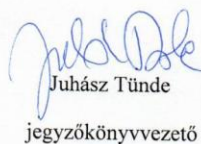 Juhász Tünde
jegyzőkönyvvezető